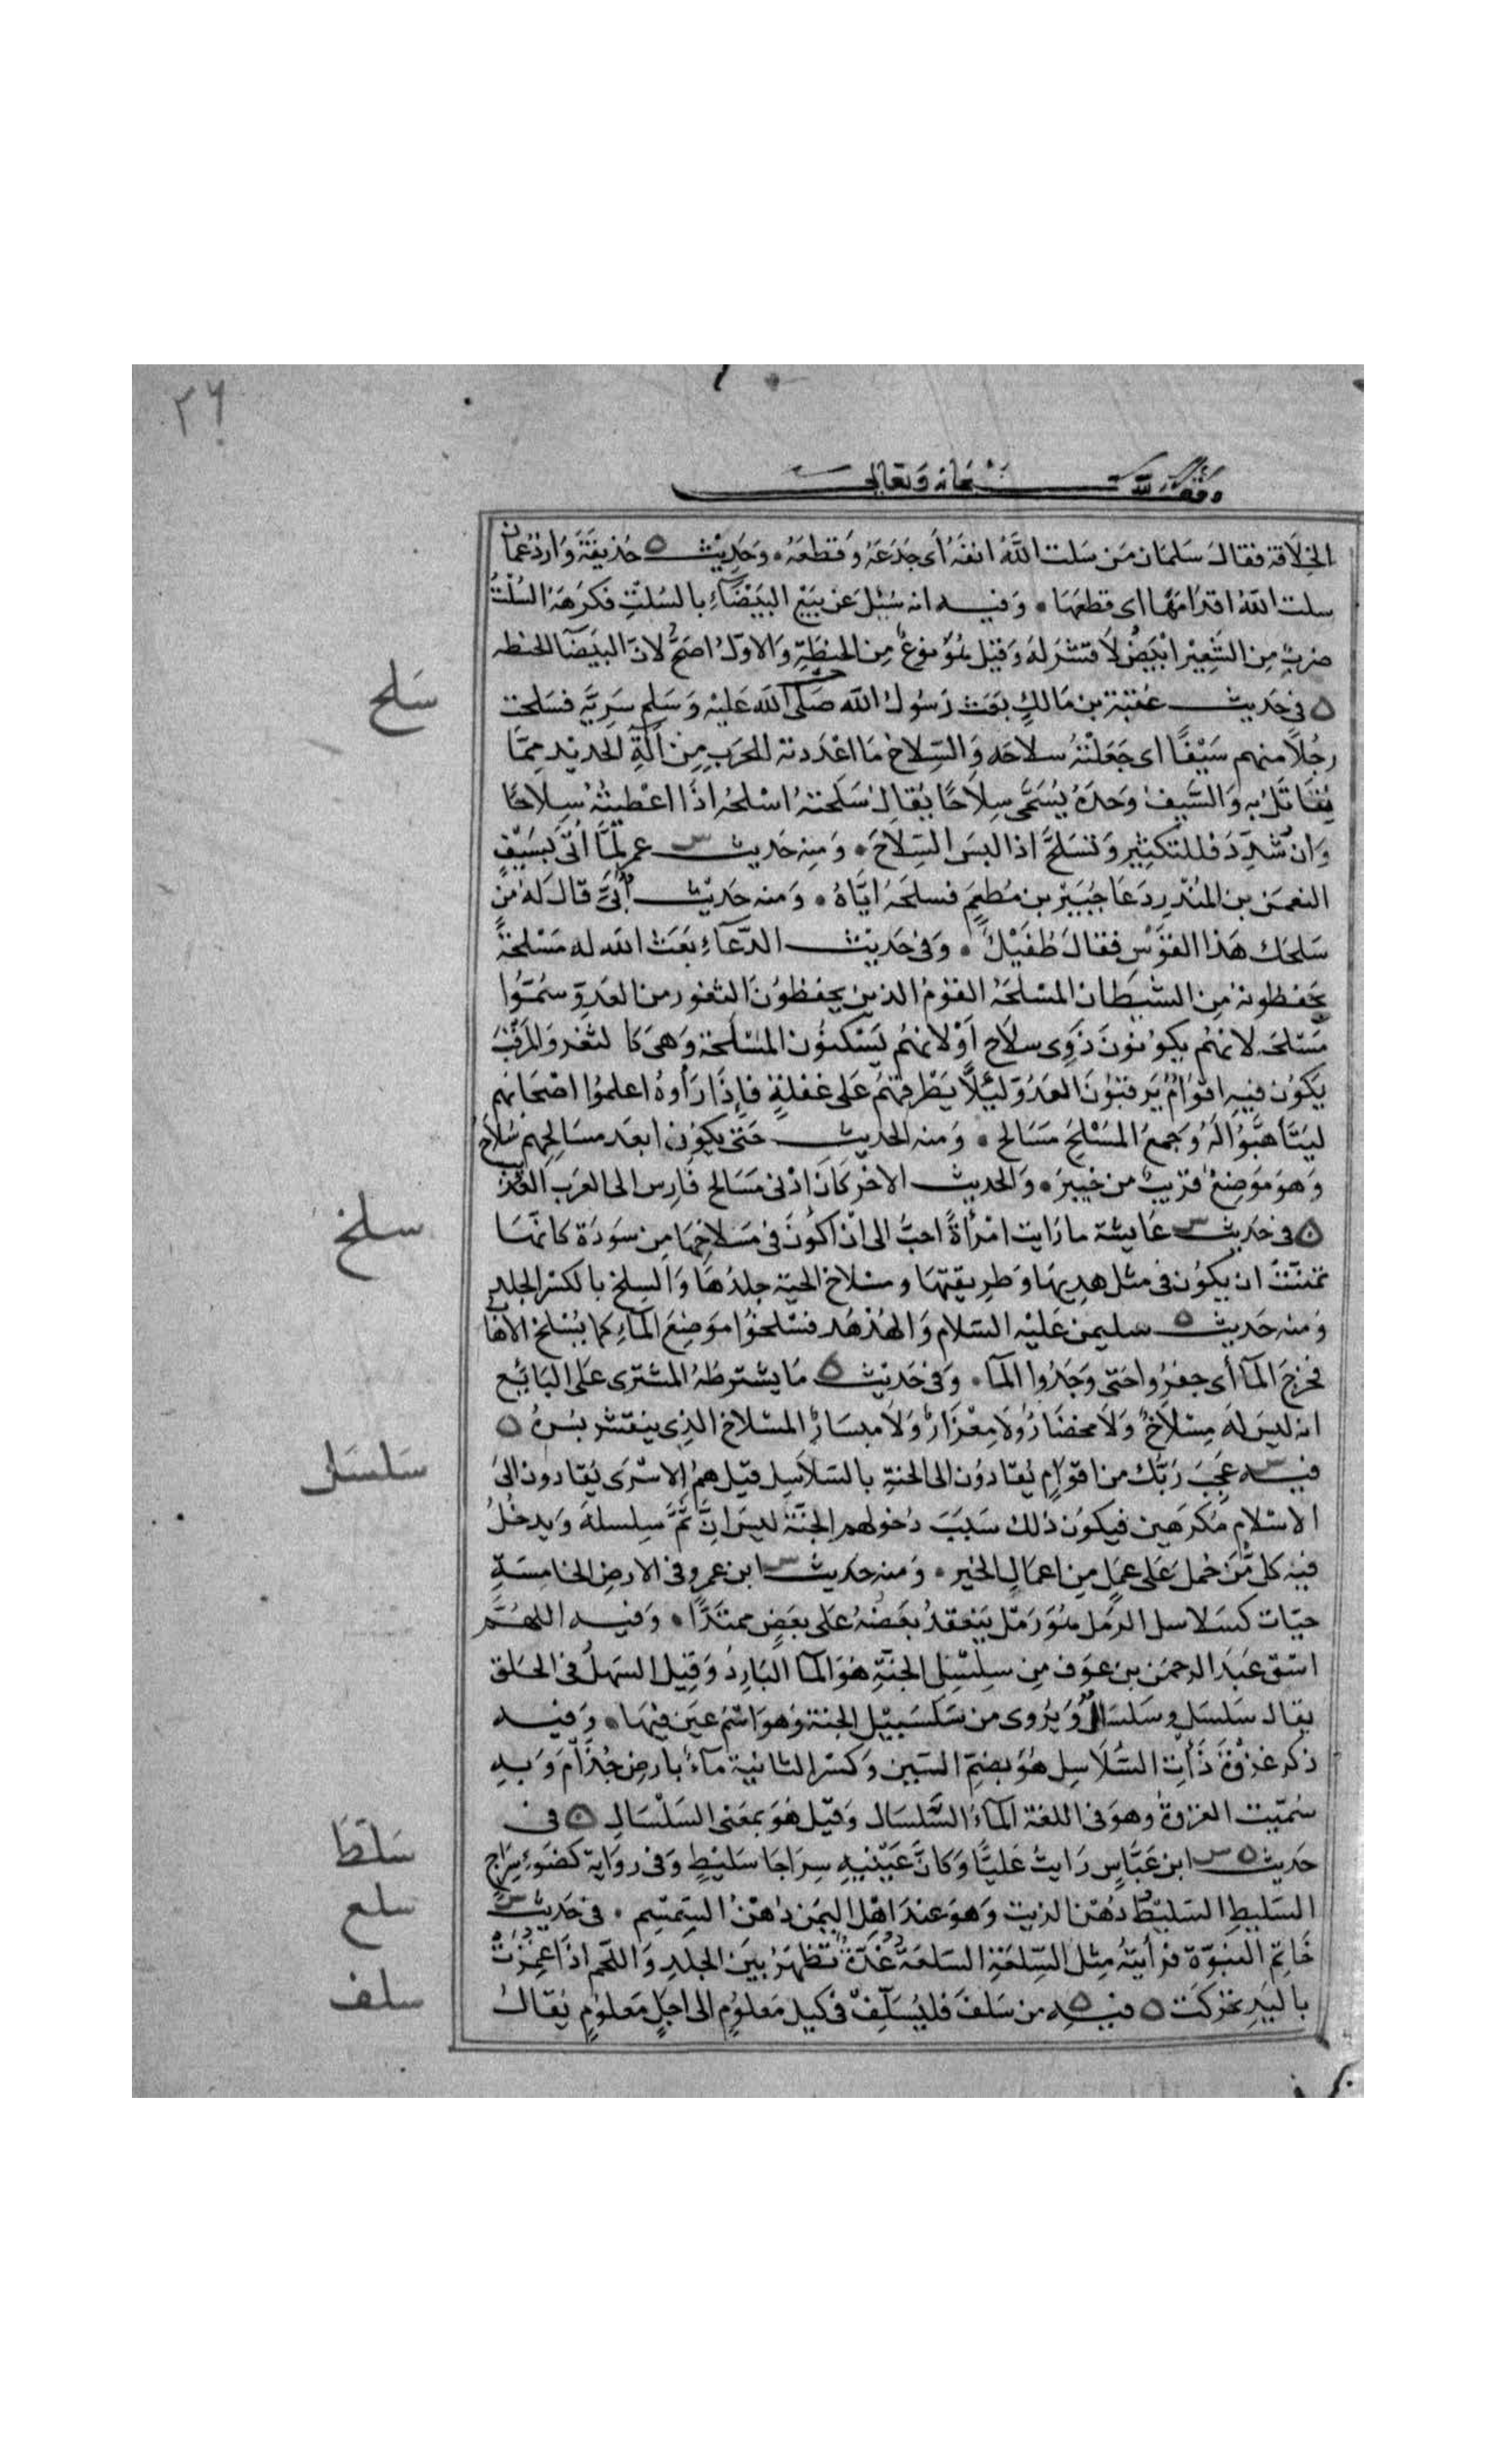 ٢٦
وقف لله سبحانه وتعالى
الخلافة فقال سلمان مَن سَلت اللَّهُ انفهُ أى جَدَعَهُ وَقطعَهُ وَحَدِيْث ه حُذيفَةَ وَازدُ عمان
سلت اللهُ اقدَامَهَا اى قطعَهَا وَفيه انه سُئِلَ عن بَيْعِ البَيْضَاءِ بالسُلتِ فكَرهَهُ السُلْتُ
ضربٌ مِن الشَّعِيْرِ ابْيَضُ لاَ قشرَ لهُ وَقيْل هُوَ نوعٌ مِن الحنطَةِ وَالاوّلُ اصَحُّ لانّ البيَضَا الحنطه
سَلح
ه فى حَدِيث عقبَة بن مَالكٍ بعَث رَسُولُ الله صَلى الله عَليْه وَسَلم سَرِيَّة فسَلحت
رجُلاً منهم سَيْفًا اى جَعَلْتهُ سلاحَه وَالسِّلاحُ مَا اعْدَدته للحَربِ مِن آلَةِ الحَديد مِمَّا
يُقَاتَلُ بِهِ وَالسَّيفُ وَحدَهُ يُسَمَّى سِلاَحًا يُقَالُ سَلَحتهُ اسْلحُهُ اذَا اعْطيتهُ سِلاحًا
وَانْ شُدِّدَ فللتكثِيرِ وَتسَلحَّ اذا لبسَ السِّلاحَ وَمنه حَديث س عمر لمَّا أُتى بسَيْفِ
النعمَن بن المُنْذر دَعَا جُبَيْرَ بن مُطعِمٍ فسلحَهُ ايَّاهُ وَمنه حَدَيْث أُبَىّ قال لهُ مَن
سَلحَك هَذا القَوْس فقالَ طُفَيْلٌ وَفى حَدِيْث الدّعَآءِ بَعَث الله له مَسْلحةً
يحَفظونهُ مِن الشيطان المسْلحَهُ القومُ الذين يحفظُونَ الثغور من العَدوّ سُمُّوا
مَسْلحَه لانهُم يكوُنونَ ذَوِى سلاَحٍ أَوْ لانهُم يَسْكنوُن المسْلَحة وَهىَ كالثغر وَالمَرْقَبُ
يكُون فيهِ اقوَامٌ يَرقبُونَ العَدُوّ ليَلاَّ يَطْرقهُمْ عَلى غفلةٍ فاِذَا رَأوهُ اعلموُا اصْحَابهم
ليَتَأهَّبُوا لَهُ وَجمعُ المَسْلحِ مَسَالح وَمنه الحَديث حَتى يكوُن ابعَد مسَالحهم سُلاَح
وَهوَ مَوضِعٌ قرَيبٌ من خيبرَ وَالحديث الاخر كَانَ ادْنى مَسَالح فَارِس الى العَرَب العُذَيْب
سلخ
ه فى حَدِيث س عَايشة ما رَايت امْرأةً احبَّ الى انْ اكُونَ فى مسْلاخِهَا مِن سَودَة كانهَّا
تمَنَّتْ ان يكوُن فى مثل هديهَا وَطرِيقتهَا ومسْلاخُ الحيّة جلدُهَا وَالسلخ بالكَسْر الجلد
وَمنه حَديث ه سليمن عَليْه السَلام وَالهُدْهد فسْلخوُا مَوضِعَ المآءِ كما يُسْلخ الاهَابُ
فخرجَ المآ أى حفرُوا حَتى وَجَدُوا المآ وَفى حَدَيْث ه مَا يشترطُهُ المشترى عَلى البَايع
انه ليسَ لهُ مِسْلاَخٌ وَلاَ مخضَارٌ وَلا مِعْرَارٌ وَلاَ مبسَارٌ المسْلاخ الذِى ينتثر بُسْرهُ ه
سَلسَل
فيه س عَجبَ رَبُّك من اقوَامٍ يُقَادوُن الى الجنةِ بالسّلاسِل قيل هُمُ الاسْرَى يُقَادون الىَ
الاسْلامِ مُكرَهين فيكوُن ذلك سَببَ دُخولهم الجَنَّة ليسَ انّ ثَمَّ سِلسلة وَيدخُلُ
فيْه كلّ مَن حُملَ عَلى عمَل مِن اعمَالِ الخير وَمنه حَديث س ابن عَمرو فى الارضِ الخامِسَةِ
حيّات كسَلاسل الرَّمل هُوَ رَمْل يَنعقدُ بعَضُهُ عَلى بعَضٍ ممتَدًّا وَفيه اللهُمَّ
اسْق عَبَد الرحمَن بن عَوف مِن سِلْسَل الجَنَّةِ هُوَ المآ البَارِدُ وَقِيل السَهلُ فى الحَلق
يقال سَلسَل وسَلسَالٌ وَيُروى من سَلْسَبيْل الجنة وَهوَ اسْمُ عَين فيهَا وَفيه
ذكر غزوَةِ ذَاتِ السُّلاَسِل هُوَ بضمِّ السّين وَكسْر الثانية مآءٌ بارضِ جُذَام وَبهِ
سُمّيت الغزوةُ وهوَ فى اللغة المآءُ السَّلسَال وَقيْل هُوَ بمعَنى السَلْسَالِ ه فى
سَلط
حَديث ه س ابن عَبَّاسٍ رَايتُ عَليًّا وَكانَّ عَيْنيهِ سِرَاجَا سَليْطٍ وَفى روَاية كضَوءِ سِرَاجِ
السَليطِ السَليْطُ دُهْن الزيت وَهوَ عندَ اهْل اليمَن دُهنُ السِّمسْم فى حَدِيْث س
سلع
خَاتِم النبوّة فرأيتهُ مِثل السِّلعَة السِّلعَةُ غُدّةٌ تظهَرُ بَين الجلدِ وَاللحم اذَا غمِزَتْ
سلف
باليَدِ تحَركَت ه فيه ه من سَلفَ فليُسَلِّفْ فى كيل مَعلوُمٍ الى اجَلٍ مَعلوُمٍ يُقالُ